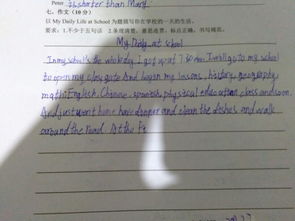 Peter is shorter than Mary.
七、作文(10分)
以 My Daily Life at School 为题描写你在学校的一天的生活。
要求：1.不少于五句话 2.条理清楚，意思连贯，标点正确，书写规范。
My Daily at school
In my school's the whole day. I get up at 7:30 am. I will go to my school
to open my class gate And began my lessons, history, geography
math English, Chinese, spanish, physical education class and soon.
And just went home have danner and clean the dishes and walk
around the road. At the